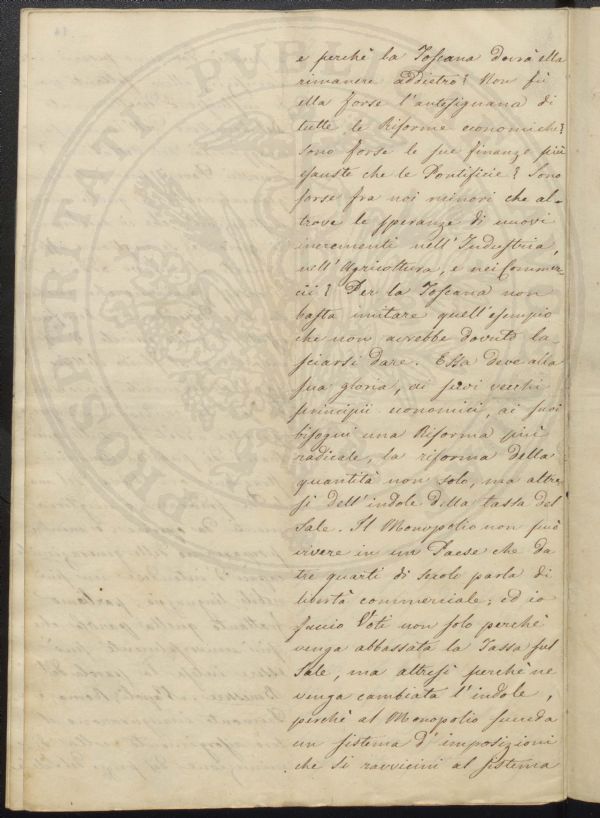 e perchè la Toscana dovrà ella
rimanere addietro? Non fù
ella forse l'antesignana di
tutte le Riforme economiche?
sono forse le sue finanze più
esauste che le Pontificie? Sono
forse fra noi minori che al-
trove le speranze di nuovi
incrementi nell'Industria,
nell'Agricoltura, e nei Commer-
cii? Per la Toscana non
basta imitare quell'esempio
che non avrebbe dovuto la-
sciarsi dare. Essa deve alla
sua gloria, ai suoi vecchi
principii economici, ai suoi
bisogni una Riforma più
radicale, la riforma della
quantità non solo, ma altre-
sì dell'indole della tassa del
Sale. Il Monopolio non può
vivere in un Paese che da
tre quarti di secolo parla di
libertà commerciale; ed io
faccio Voti non solo perchè
venga abbassata la Tassa sul
Sale, ma altresì perchè ne
venga cambiata l'indole,
perchè al Monopolio succeda
un sistema d'imposizioni
che si ravvicini al sistema
PROSPERITATI PVBL